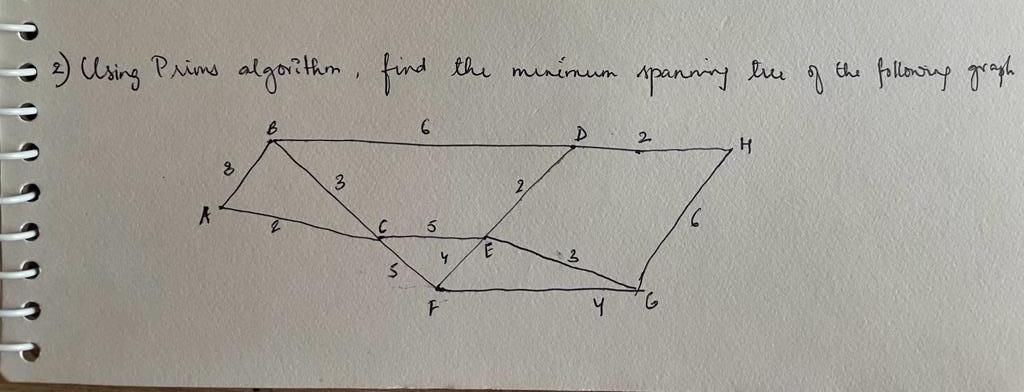 2) Using Prims algorithm, find the minimum spanning tree of the following graph
B 6 D 2 H
8 3 2
A 2 C 5 E 6
5 4 3
F 4 G